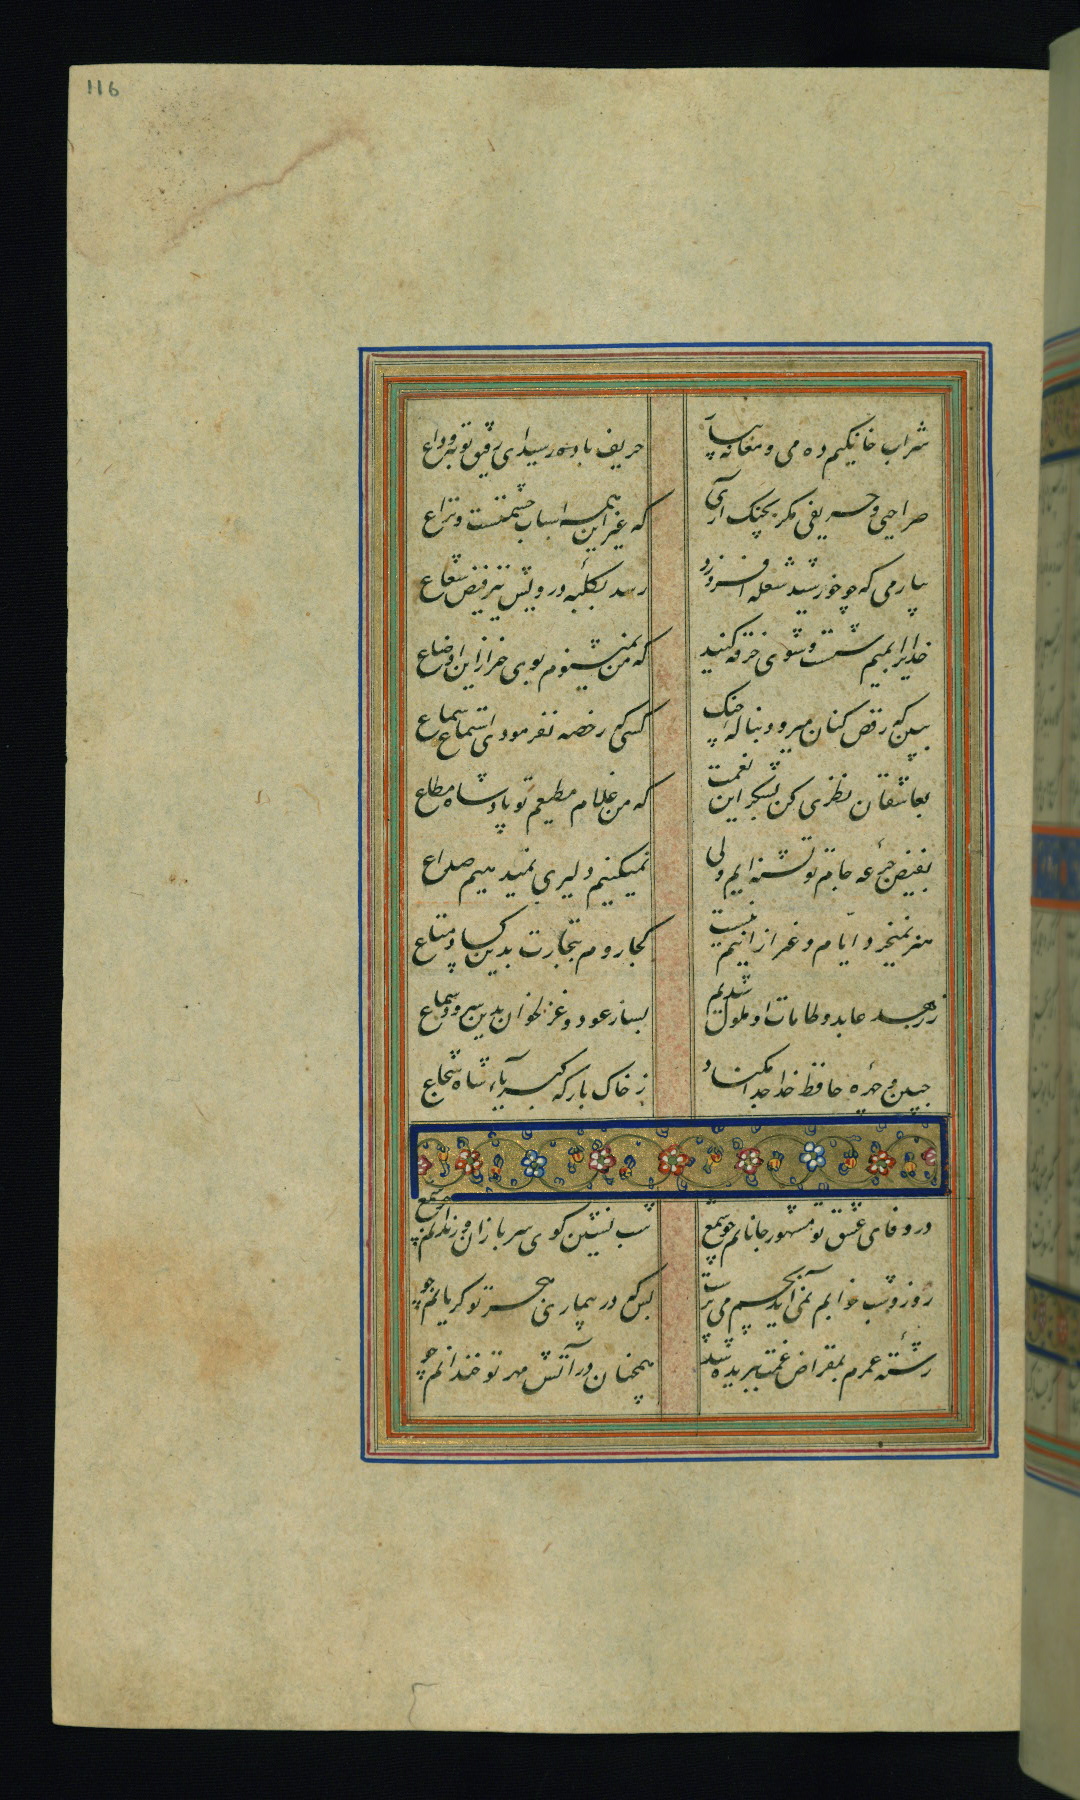 116
شراب خانگیم ده می و مغانه بیار حریف باده رسید ای رفیق توبه وداع
صراحی و حریفی مگر بچنک آری که غیر این همه اسباب خشمتست و نزاع
بیار می که چو خورشید شعله افروزد رسد بکلبهٔ درویش نیز فیض شعاع
خدایرا بمیم شست و شوی خرقه کنید که من نمیشنوم بوی خیر از این اوضاع
ببین که رقص کنان میرود بناله چنک کسی که رخصه نفرمودی استماع سماع
بعاشقان نظری کن بشکر این نعمت که من غلام مطیعم تو پادشاه مطاع
بفیض جرعهٔ جام تو تشنه ایم ولی نمیکنیم دلیری نمیدهیم صداع
هنر نمیخرد ایّام و غیر ازینم نیست کجا روم بتجارت بدین کساد متاع
ز زهد عابد و طامات او ملول شدیم بساز عود و غزلخوان بدین سرود و سماع
جبین و چهرهٔ حافظ خدا جدا مکناد ز خاک بارگه کبریاء شاه شجاع
در وفای عشق تو مشهور جانانم چو شمع شب نشین کوی سربازان و رندانم چو شمع
روز و شب خوابم نمی آید بچشم می پرست بس که در بیماری هجر تو گریانم چو
رشتهٔ عمرم بمقراض غمت ببریده شد همچنان در آتش مهر تو خندانم چو